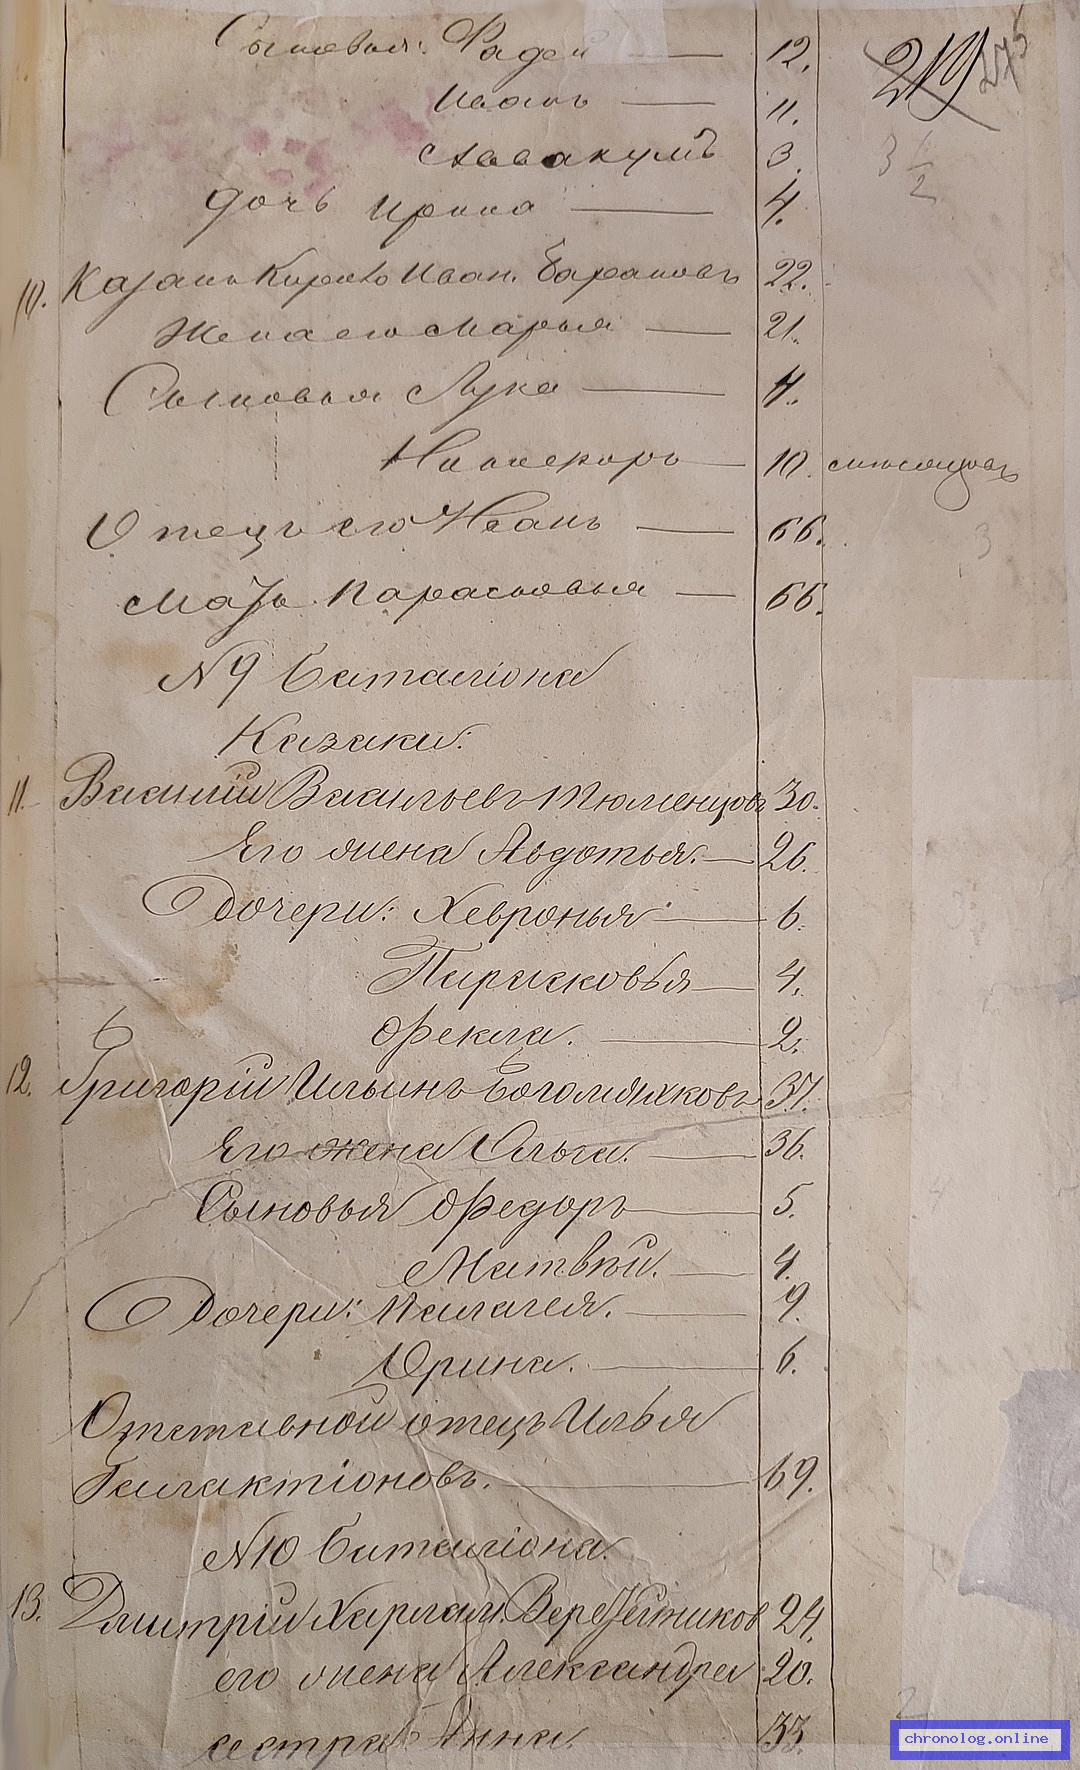 Сыновья: Фадей — 12.
Иванъ — 11.
Аввакумъ 3.
Дочь Ирина — 4.
10. Казакъ Кирило Иван. Барановъ 22.
Жена его Марья — 21.
Сыновья Лука — 4.
Никифоръ — 10. мѣсяцовъ
Отецъ его Иванъ — 66.
Мать Парасковья — 66.
N 9 Баталіона
Казаки:
11. Василій Васильевъ Тюменцовъ 30.
Его жена Авдотья. — 26.
Дочери: Хевронья — 6.
Парасковья — 4.
Фекла. — 2.
12. Григорій Ильинъ Богомяхковъ 37.
Его жена Ольга. — 36.
Сыновья Федоръ — 5.
Матвѣй. — 4.
Дочери: Палагея. — 9.
Орина. — 6.
Отставной отецъ Илья
Галактіоновъ. — 69.
N 10 Баталіона.
13. Дмитрій Харлам. 24.
его жена Александра 20.
сестра Анна. 33.
219
275
3 1/2
3
2
chronolog.online